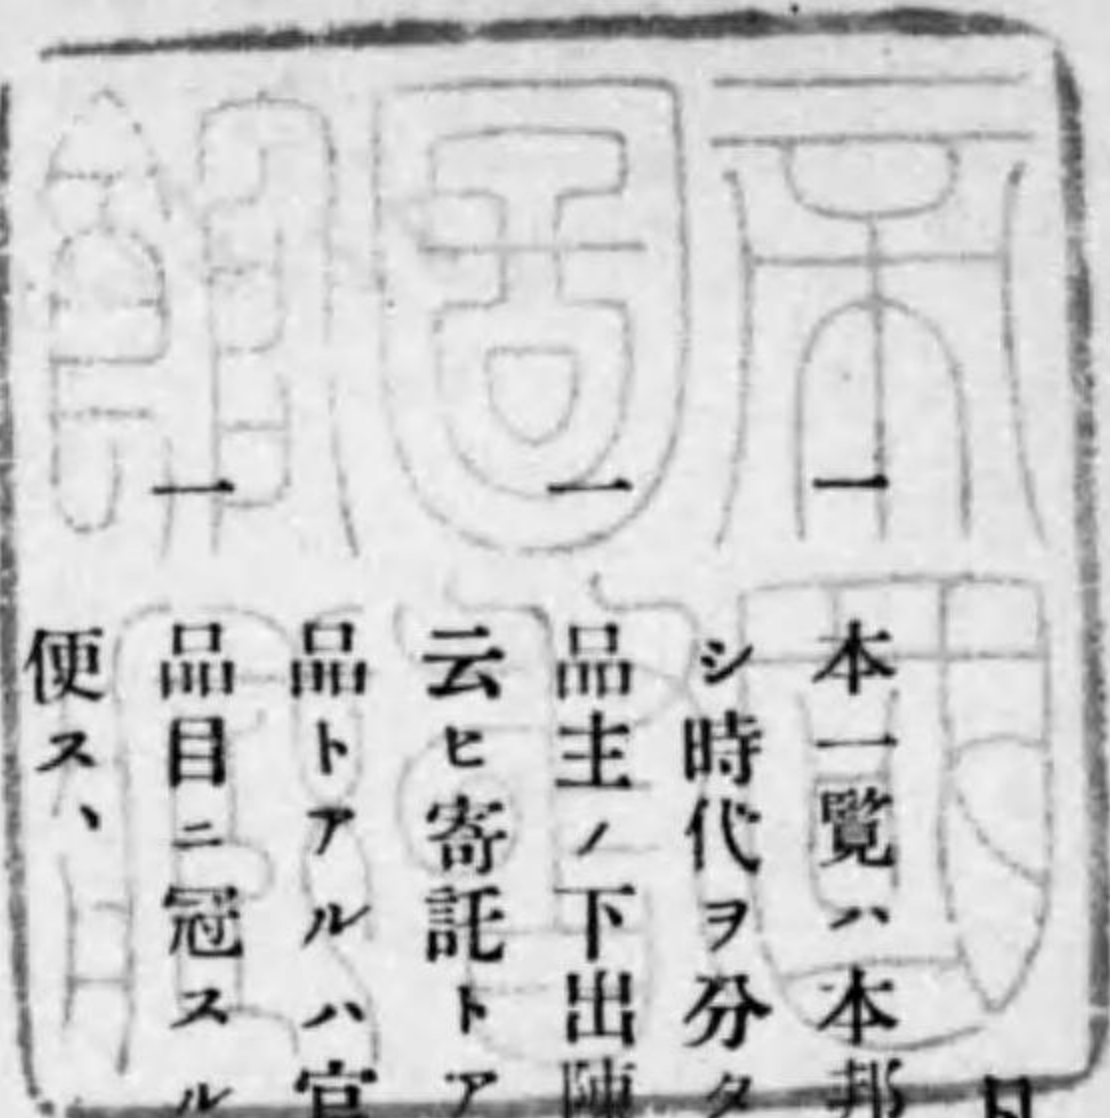 帝國
圖書
館藏
一 本一覽ハ本邦
シ時代ヲ分タ
一 品主ノ下出陳
云ヒ寄託トア
品トアルハ官
一 品目ニ冠スル
便ス、